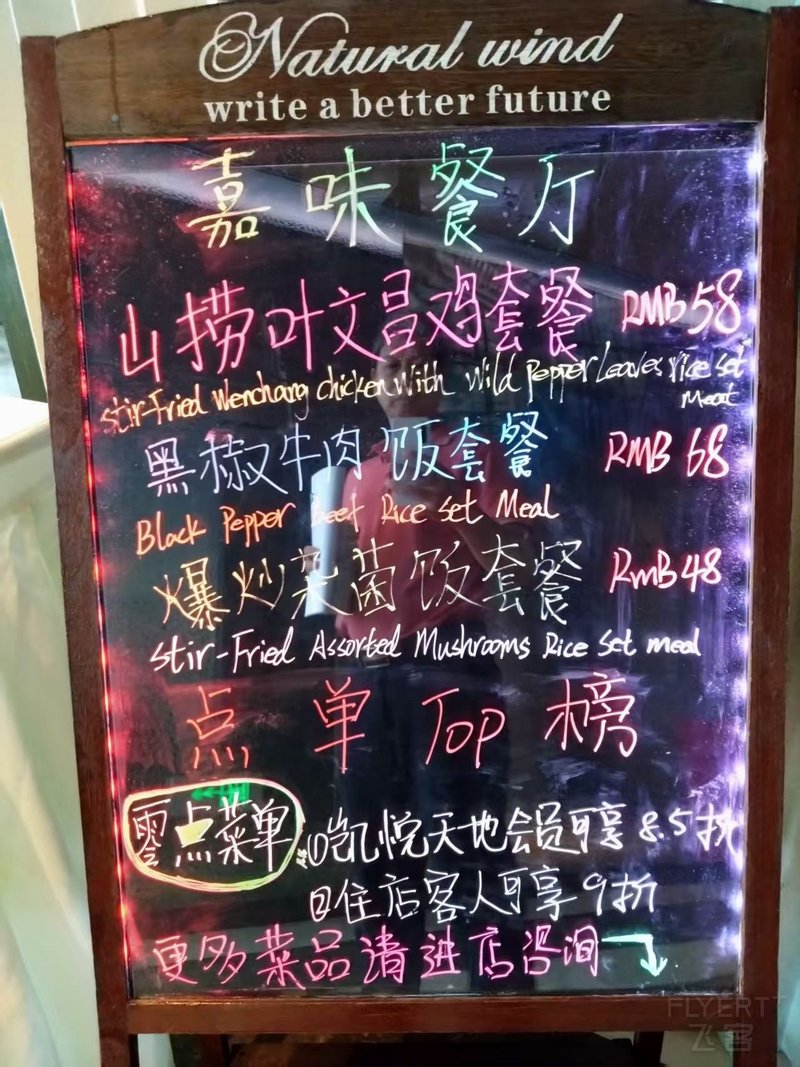 Natural wind
write a better future
嘉味餐厅
山捞叶文昌鸡套餐 RMB 58
Stir-Fried Wenchang chicken With Wild Pepper Leaves rice set
Meal
黑椒牛肉饭套餐 RMB 68
Black Pepper Beef Rice Set Meal
爆炒杂菌饭套餐 RMB 48
Stir-Fried Assorted Mushrooms Rice Set meal
点单Top榜
零点菜单 ①凯悦天地会员可享8.5折
②住店客人可享9折
更多菜品请进店咨询
FLYERT+
飞客